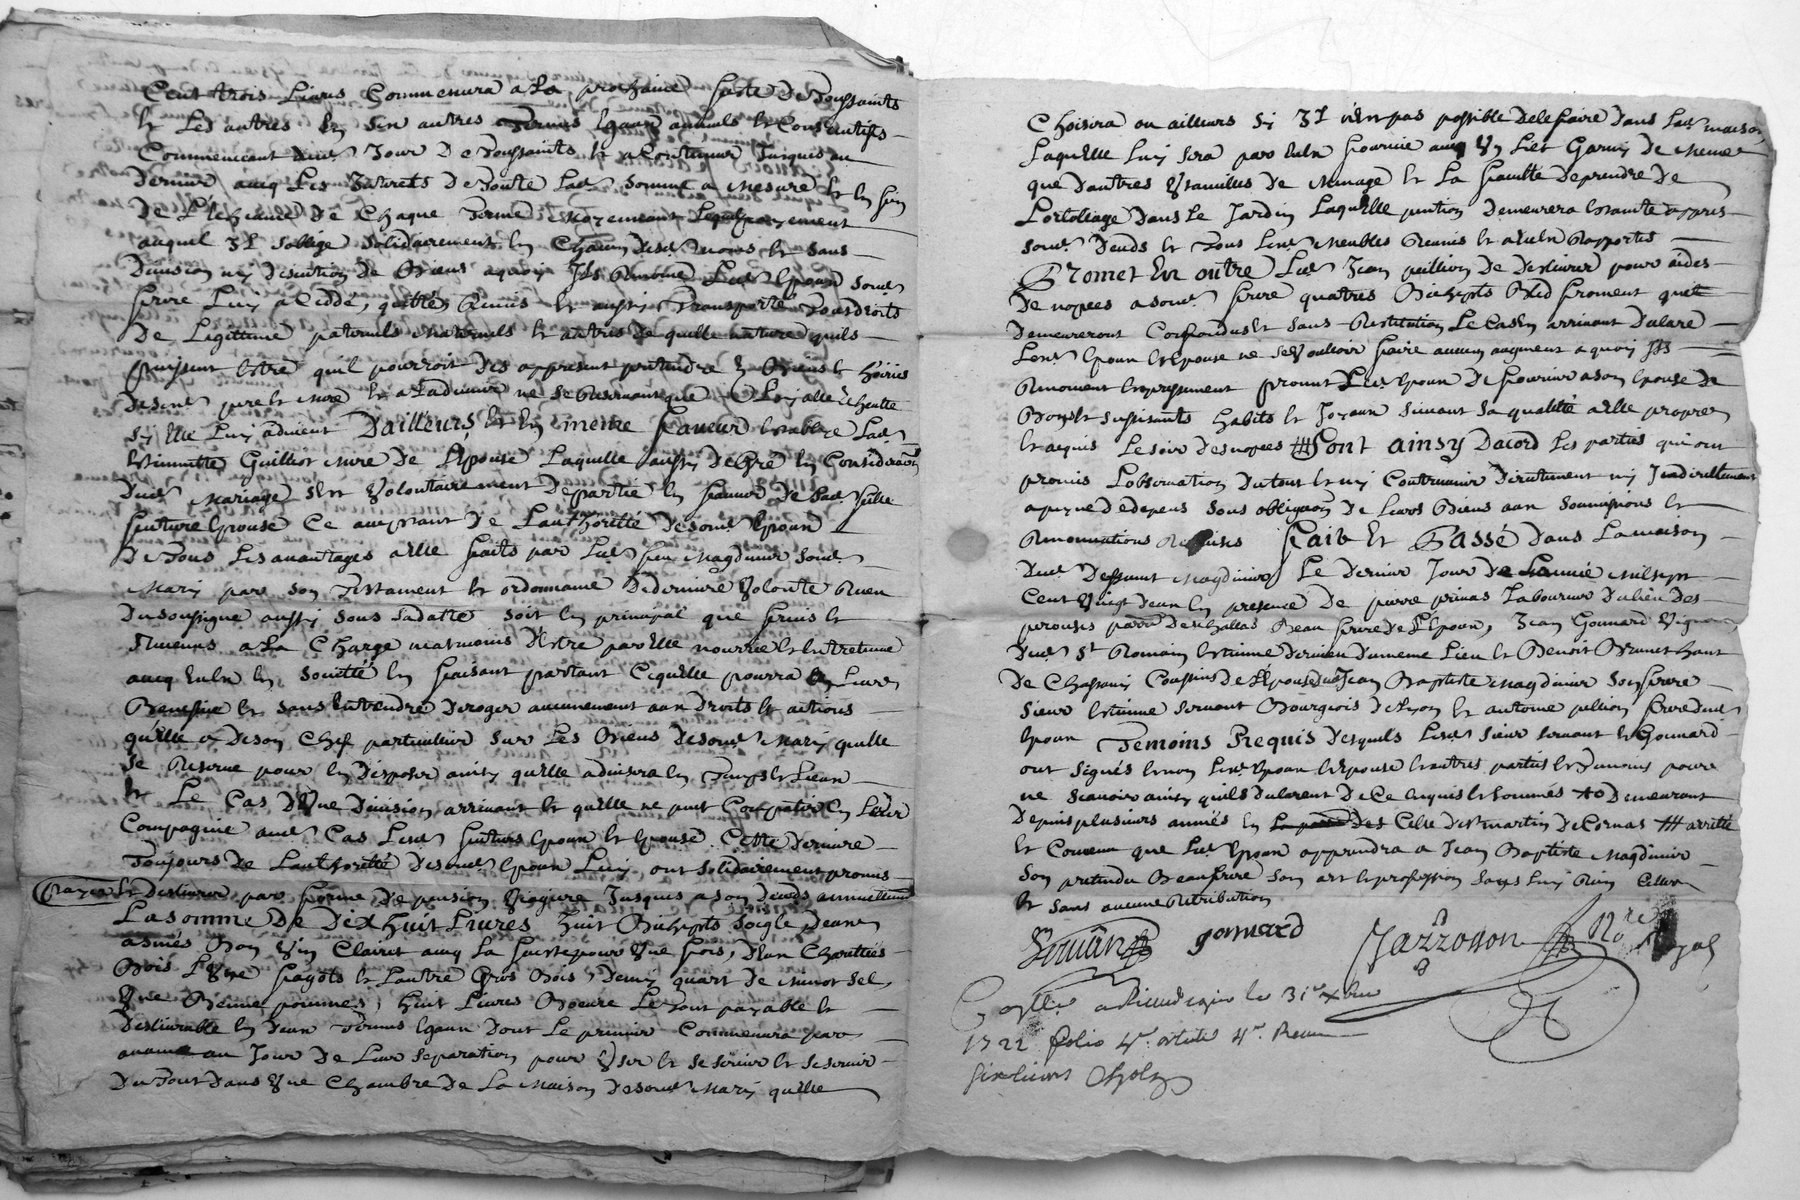 Cent trois Livres Commencera a La prochaine faste De Toussaints
et Les autres En Six autres Termes Egaux annuels et Consecutifs
Commencant dud. Jour De Toussaints et a Continuer Jusques au
Dernier avecq Les Interets De Toute Lad. somme a Mesure et En fin
De L'Echeance De Chaque Terme Moyennant Lequel payement
auquel Il soblige solidairement En Chacun desd. noms et sans
Division ny Discution De Biens aquoy Ils Renonce Led. Epoux Sond.
frere Luy a Ceddé, quitté, Remis et aussy Transporté Tousdroits
De Legittime paternels Maternels et autres De quelle nature quils
puissent Estre quil pourroit Des appresent pretendre Es Biens et hoiries
Desesd. pere et Mere Et a Ladvenir ne Se Reservant que
sy Elle Luy advient Dailleurs Et En meme faveur Establye Lad.
Guilliot Mere De L'Epouse Laquelle aussy De Gré En Consideration
Dud. Mariage S'est Volontairement Departie En faveur De Sad. fille
future Epouse Ce acceptant De L'authorité Desond. Epoux
De Tous Les avantages a Elle faits par Led. feu Magdinier Sond.
Mary par son Testament et ordonnance De derniere Volonte Receu
Du soussigne aussy sous sadatte soit En principal que fruis et
Revenus a La Charge neatmoins D'Estre par Elle nourrie et Entretenue
avecq Eulx En Societté En faisant partant Ce quelle pourra En Leur
Benefice et sans Entendre Deroger aucunement aux Droits et actions
qu'elle a De son Chef particulier sur Les Biens Desond. Mary quelle
se Reserve pour En Disposer ainsy quelle advisera En Temps et Lieux
Et Le Cas D'Une Division arrivant et quelle ne put Compatir En Leur
Compagnie aud. Cas Lesd. futurs Epoux et Epouse Cette Derniere
Toujours De Lauthorité Desond. Epoux Luy ont solidairement promis
payer et Deslivrer par forme De pension Viagere Jusques a son Deceds annuellement
La somme De Dix huit Livres huit Bichepts soigle Deux
asnés Bon Vin Clairet avecq La futte pour Une fois, Deux Charrttés
Bois L'Une fagots et Lautre Gros Bois, Demy quart De Minot sel
Une Benne pommes, huit Livres Beurre Le Tout payable et
Deslivrable En Deux Termes Egaux Dont Le premier Commencera par
avance au Jour De Leur separation pour Y user et se servir et se servir
Du Tout Dans Une Chambre De La Maison Desond. Mary quelle
Choisira ou ailleurs sy Il n'est pas possible De le faire Dans Lad. maison
Laquelle Luy sera par Eulx fournie avecq Un Liet Garny De Meme
que Dautres Ustanciles De Menage et La faculté De prendre De
Lortollage Dans Le Jardin Laquelle pention Demeurera Esteinte appres
sond. Deceds et Tous Lesd. Meubles Remis et a Eulx Rapportes
Promet En outre Led. Jean peillion De Deslivrer pour aides
De nopces a sond. frere quatres Bichepts Bled froment quil
Demeureront Confondus et sans Restitution Le Cas En arrivant Declare
Lesd. Epoux et Epouse ne Se Voulloir faire aucun augment a quoy Ils
Renoncent Expressement promet Led. Epoux De fournir a son Epouse De
Bons et suffisants habits et Joyaux suivant sa qualité a Elle propres
Et acquis Le soir Des nopces Sont ainsy Dacord Les parties qui ont
promis L'observation Du tout et ny Contrevenir Directement ny Indirectement
a peyne De depens sous obligaon De Leurs Biens aux soumissions et
Renonciations Requises Fait et Passé Dans La maison
Dud. Deffunt Magdinier Le Dernier Jour De Lannée Milsept
Cent Vingt Deux En presence De pierre privas Laboureur Du lieu Des
perouses parr. De Beau frere De L'Epoux, Jean Gounard Vigneron
Dud. St Romain Estienne Du meme Lieu et Benoit Brunet
De Chassaing Cousins De L'Epouse Jean Baptiste Magdinier Son frere
Sieur Estienne Servant Bourgeois De Lyon et antoine pellion frere Dud.
Epoux Temoins Requis Desquels Lesd. sieur servant et Gounard
ont signés Et non Lesd. Epoux Et Epouse Et autres parties Et Temoins pour
ne scavoir ainsy quils Declarent De Ce Enquis et sommés Demeurant
Depuis plusieurs annés En Des Celle De St martin De Cornas arretté
Et Convenu que Led. Epoux apprendra a Jean Baptiste Magdinier
Son pretendu Beau frere son art et profession sans Luy Rien Celler
Et sans aucune Retribution
Servant gounard Jazzonon Nre Royal
Conllé a Rivedegier le 31e Xbre
1722 folio 4r. article 4r. Receu
six livres